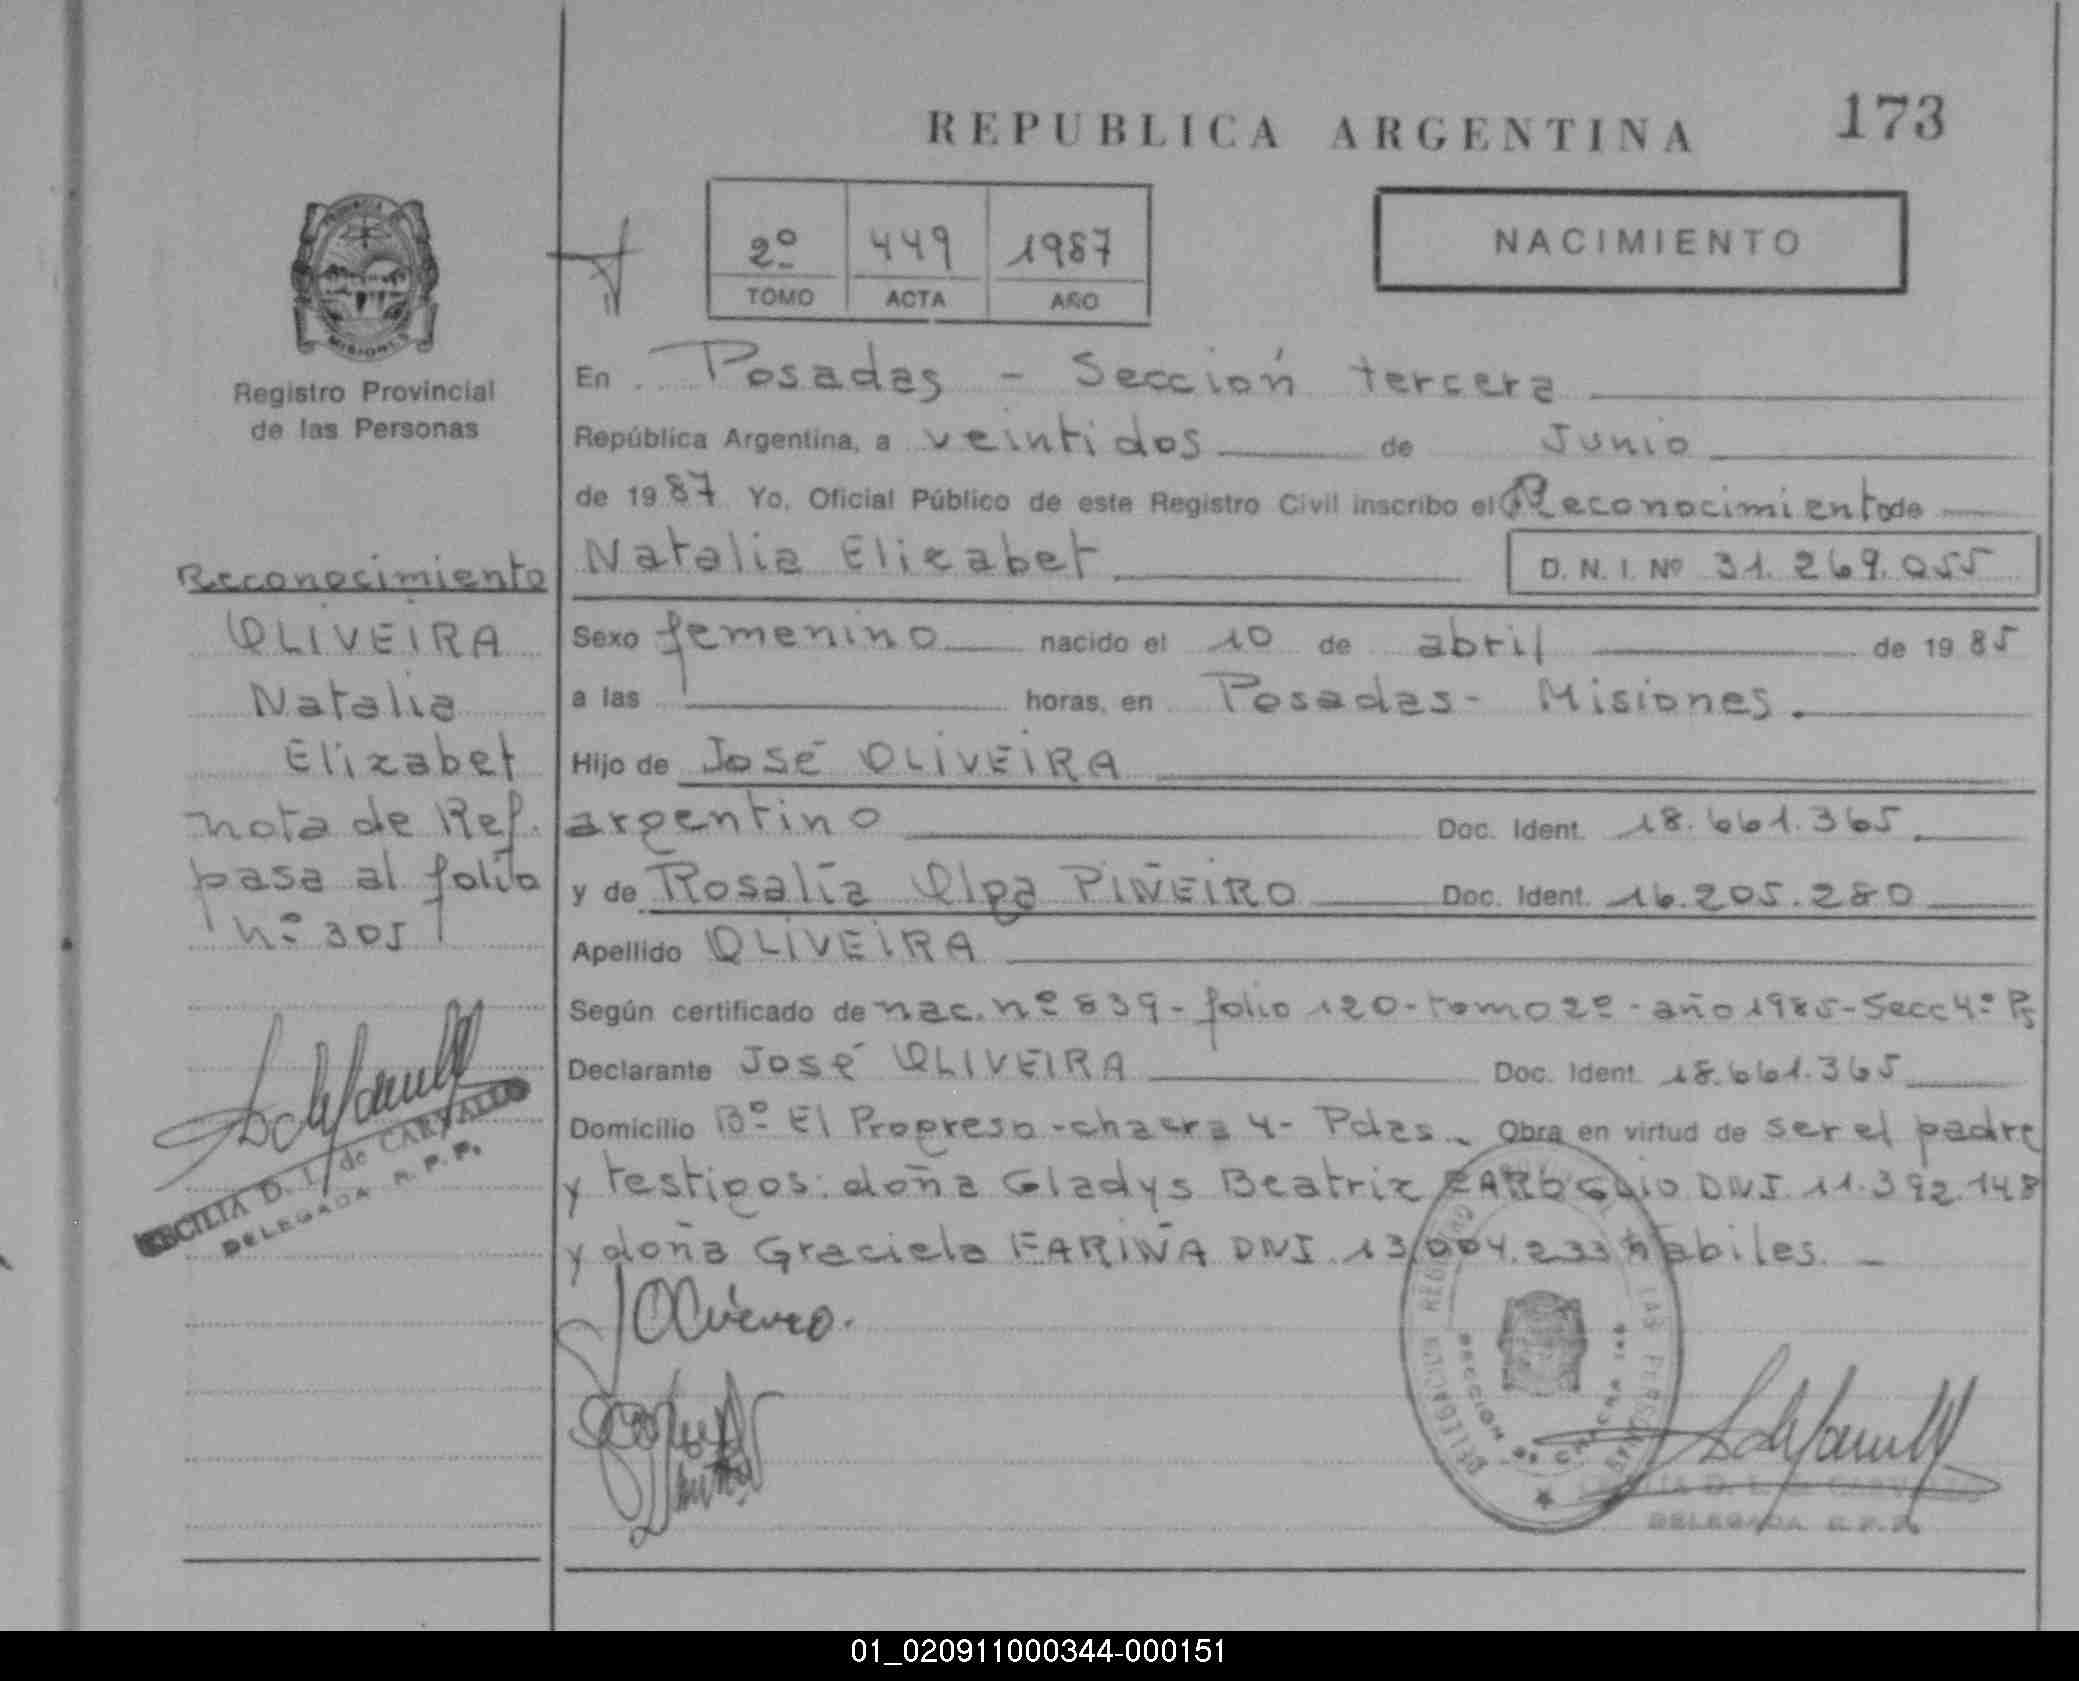 REPUBLICA ARGENTINA 173
2º 449 1987
TOMO ACTA AÑO
NACIMIENTO
MISIONES
Registro Provincial
de las Personas
Reconocimiento
OLIVEIRA
Natalia
Elizabet
nota de Ref.
pasa al folio
nº 305
CECILIA D. L. de CARVALLO
DELEGADA R. P. P.
En Posadas - Sección tercera
República Argentina, a veintidos de Junio
de 1987 Yo, Oficial Público de este Registro Civil inscribo el Reconocimiento de
Natalia Elizabet D. N. I. Nº 31.269.055
Sexo femenino nacido el 10 de abril de 1985
a las horas, en Posadas - Misiones.
Hijo de José OLIVEIRA
argentino Doc. Ident. 18.661.365.
y de Rosalía Olga PIÑEIRO Doc. Ident. 16.205.280
Apellido OLIVEIRA
Según certificado de nac. nº 839 - folio 120 - tomo 2º - año 1985 - Secc 4º Ps
Declarante José OLIVEIRA Doc. Ident. 18.661.365
Domicilio Bº El Progreso - chacra 4 - Pdas. Obra en virtud de ser el padre
y testigos: doña Gladys Beatriz DNI. 11.392.148
y doña Graciela FARIÑA DNI. 13.004.233 hábiles. -
DELEGADA R. P. P.
01_020911000344-000151